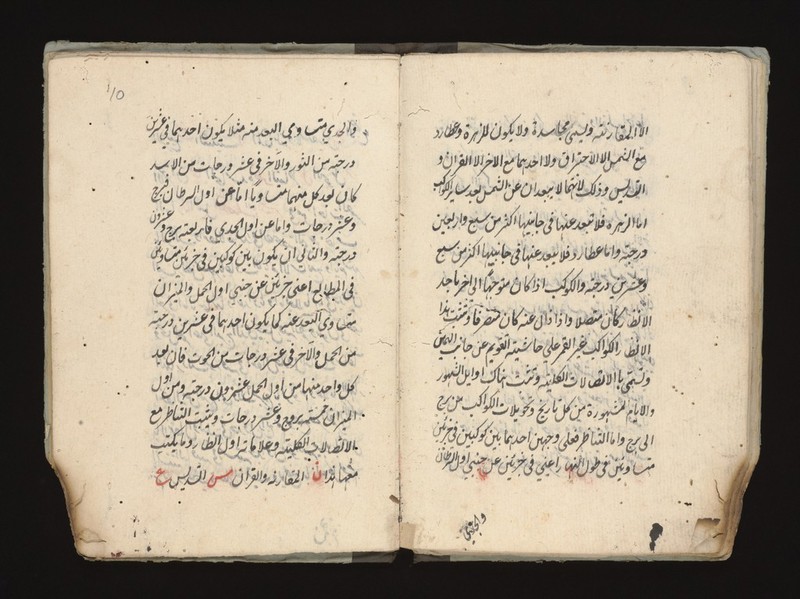 الا المقارنة وتسمى مجاسدة ولا يكون للزهرة وعطارد
مع الشمس الا الاحتراق ولا احدهما مع الاخر الا القران و
التسديس وذلك لانهما لا يبعدان عن الشمس بعد ساير الكواكب
اما الزهرة فلا تبعد عنها فى جانبيها اكثر من سبع واربعين
درجة واما عطارد فلا يبعد عنها فى جانبيها اكثر من سبع
وعشرين درجة والكوكب اذا كان متوجها الى اخر باحد
الانظار كان متصلا واذا زال عنه كان منصرفا وتثبت هذا
الانظار الكواكب غير القمر على حاشية التقويم عن جانب
وتسمى بالاتصالات الكلية وتثبت هناك اوايل الشهور
والايام المشهورة من كل تاريخ وتحويلات الكواكب من برج
الى برج واما التناظر فعلى وجهين احدهما بين كوكبين فى جزئين
متساويين فى طول النهار اعنى فى جزئين عن جنبى اول السرطان
والجدى
10
والجدي متساوي البعد منه مثلا يكون احدهما فى عشرين
درجة من الثور والاخر فى عشر درجات من الاسد
كان بعد كل منهما متساويا اما عن اول السرطان فبرج
وعشر درجات واما عن اول الجدى فاربعة بروج وعشرون
درجة والثانى ان يكون بين كوكبين فى جزئين متساويين
فى المطالع اعنى جزئين عن جنبى اول الحمل والميزان
متساوي البعد عنه كما يكون احدهما فى عشرين درجة
من الحمل والاخر فى عشر درجات من الحوت فان بعد
كل واحد منهما من اول الحمل عشرون درجة ومن اول
الميزان خمسة بروج وعشر درجات ويثبت التناظر مع
الاتصالات الكلية وعلامات اول انظار وما يكتب
معها هذا ن المقارنه والقران س التسديس ع